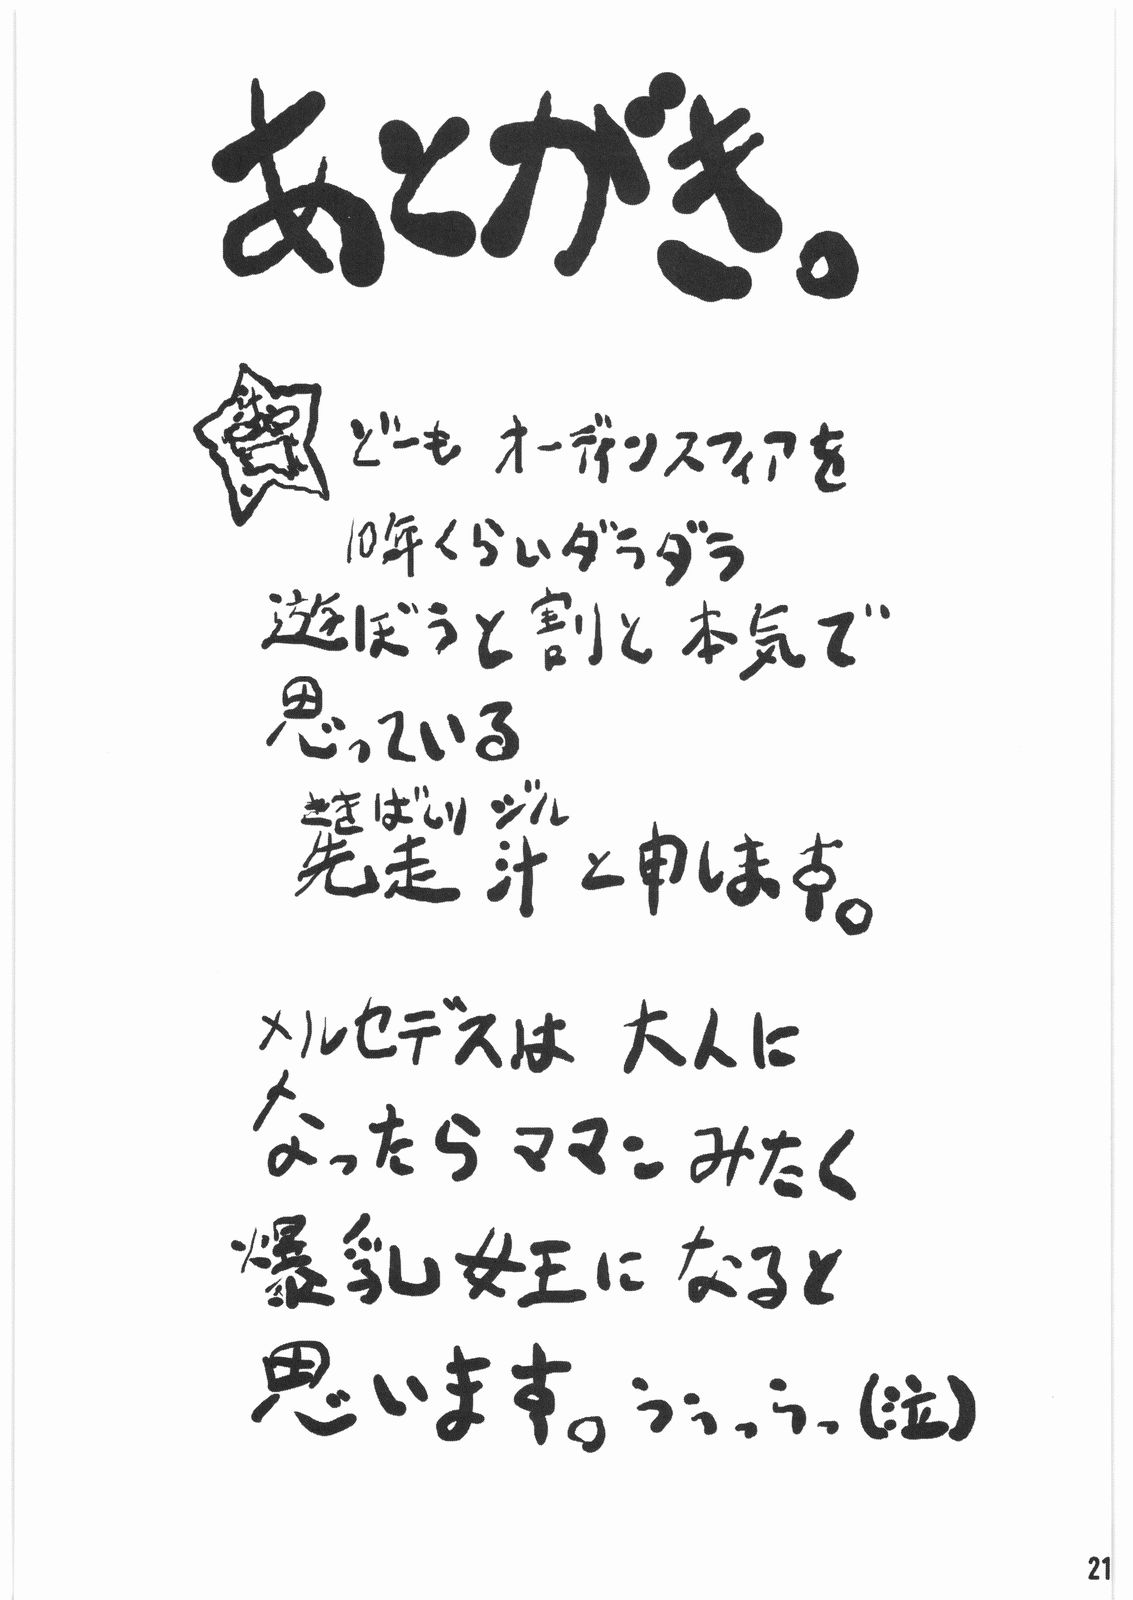 あとがき。
どーも オーディンスフィアを
10年くらいダラダラ
遊ぼうと割と本気で
思っている
さきばしり ジル
先走 汁 と申します。
メルセデスは 大人に
なったら ママン みたく
爆乳女王に なると
思います。 ううっうっ (泣)
21